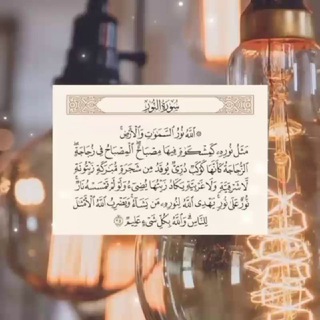 سُورَةُ النُّورِ
۞ اللَّهُ نُورُ السَّمَاوَاتِ وَالْأَرْضِ ۚ
مَثَلُ نُورِهِ كَمِشْكَاةٍ فِيهَا مِصْبَاحٌ ۖ الْمِصْبَاحُ فِي زُجَاجَةٍ ۖ
الزُّجَاجَةُ كَأَنَّهَا كَوْكَبٌ دُرِّيٌّ يُوقَدُ مِن شَجَرَةٍ مُّبَارَكَةٍ زَيْتُونَةٍ
لَّا شَرْقِيَّةٍ وَلَا غَرْبِيَّةٍ يَكَادُ زَيْتُهَا يُضِيءُ وَلَوْ لَمْ تَمْسَسْهُ نَارٌ ۚ
نُّورٌ عَلَىٰ نُورٍ ۗ يَهْدِي اللَّهُ لِنُورِهِ مَن يَشَاءُ ۚ وَيَضْرِبُ اللَّهُ الْأَمْثَالَ
لِلنَّاسِ ۗ وَاللَّهُ بِكُلِّ شَيْءٍ عَلِيمٌ ۝٣٥